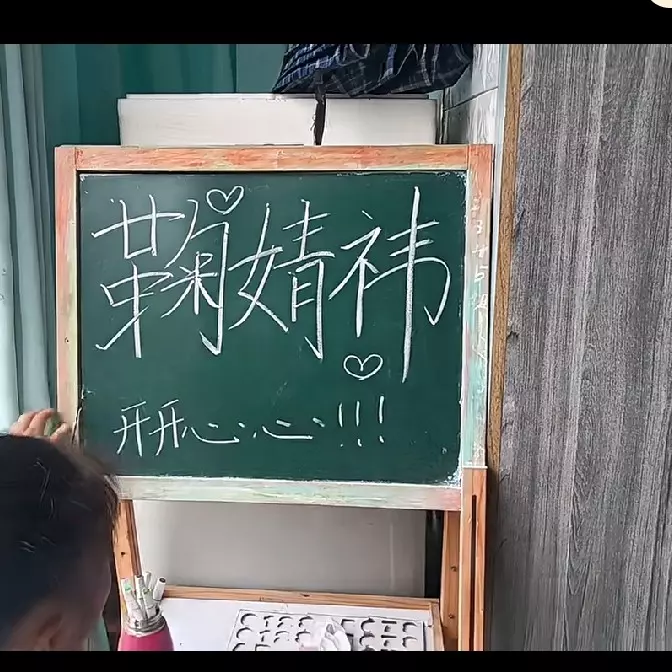 鞠婧祎
开开心心!!!